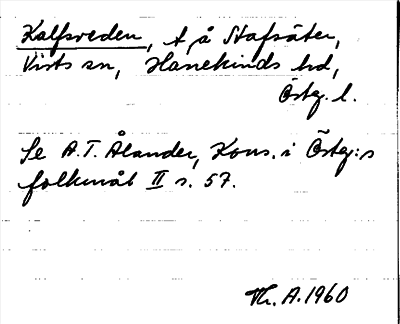 Kalfsveden, t. å Stafsäter,
Vists sn, Hanekinds hd,
Östg. l.
Se A.T. Ålander, Kons. i Östg:s
folkmål II s. 57.
Th. A. 1960